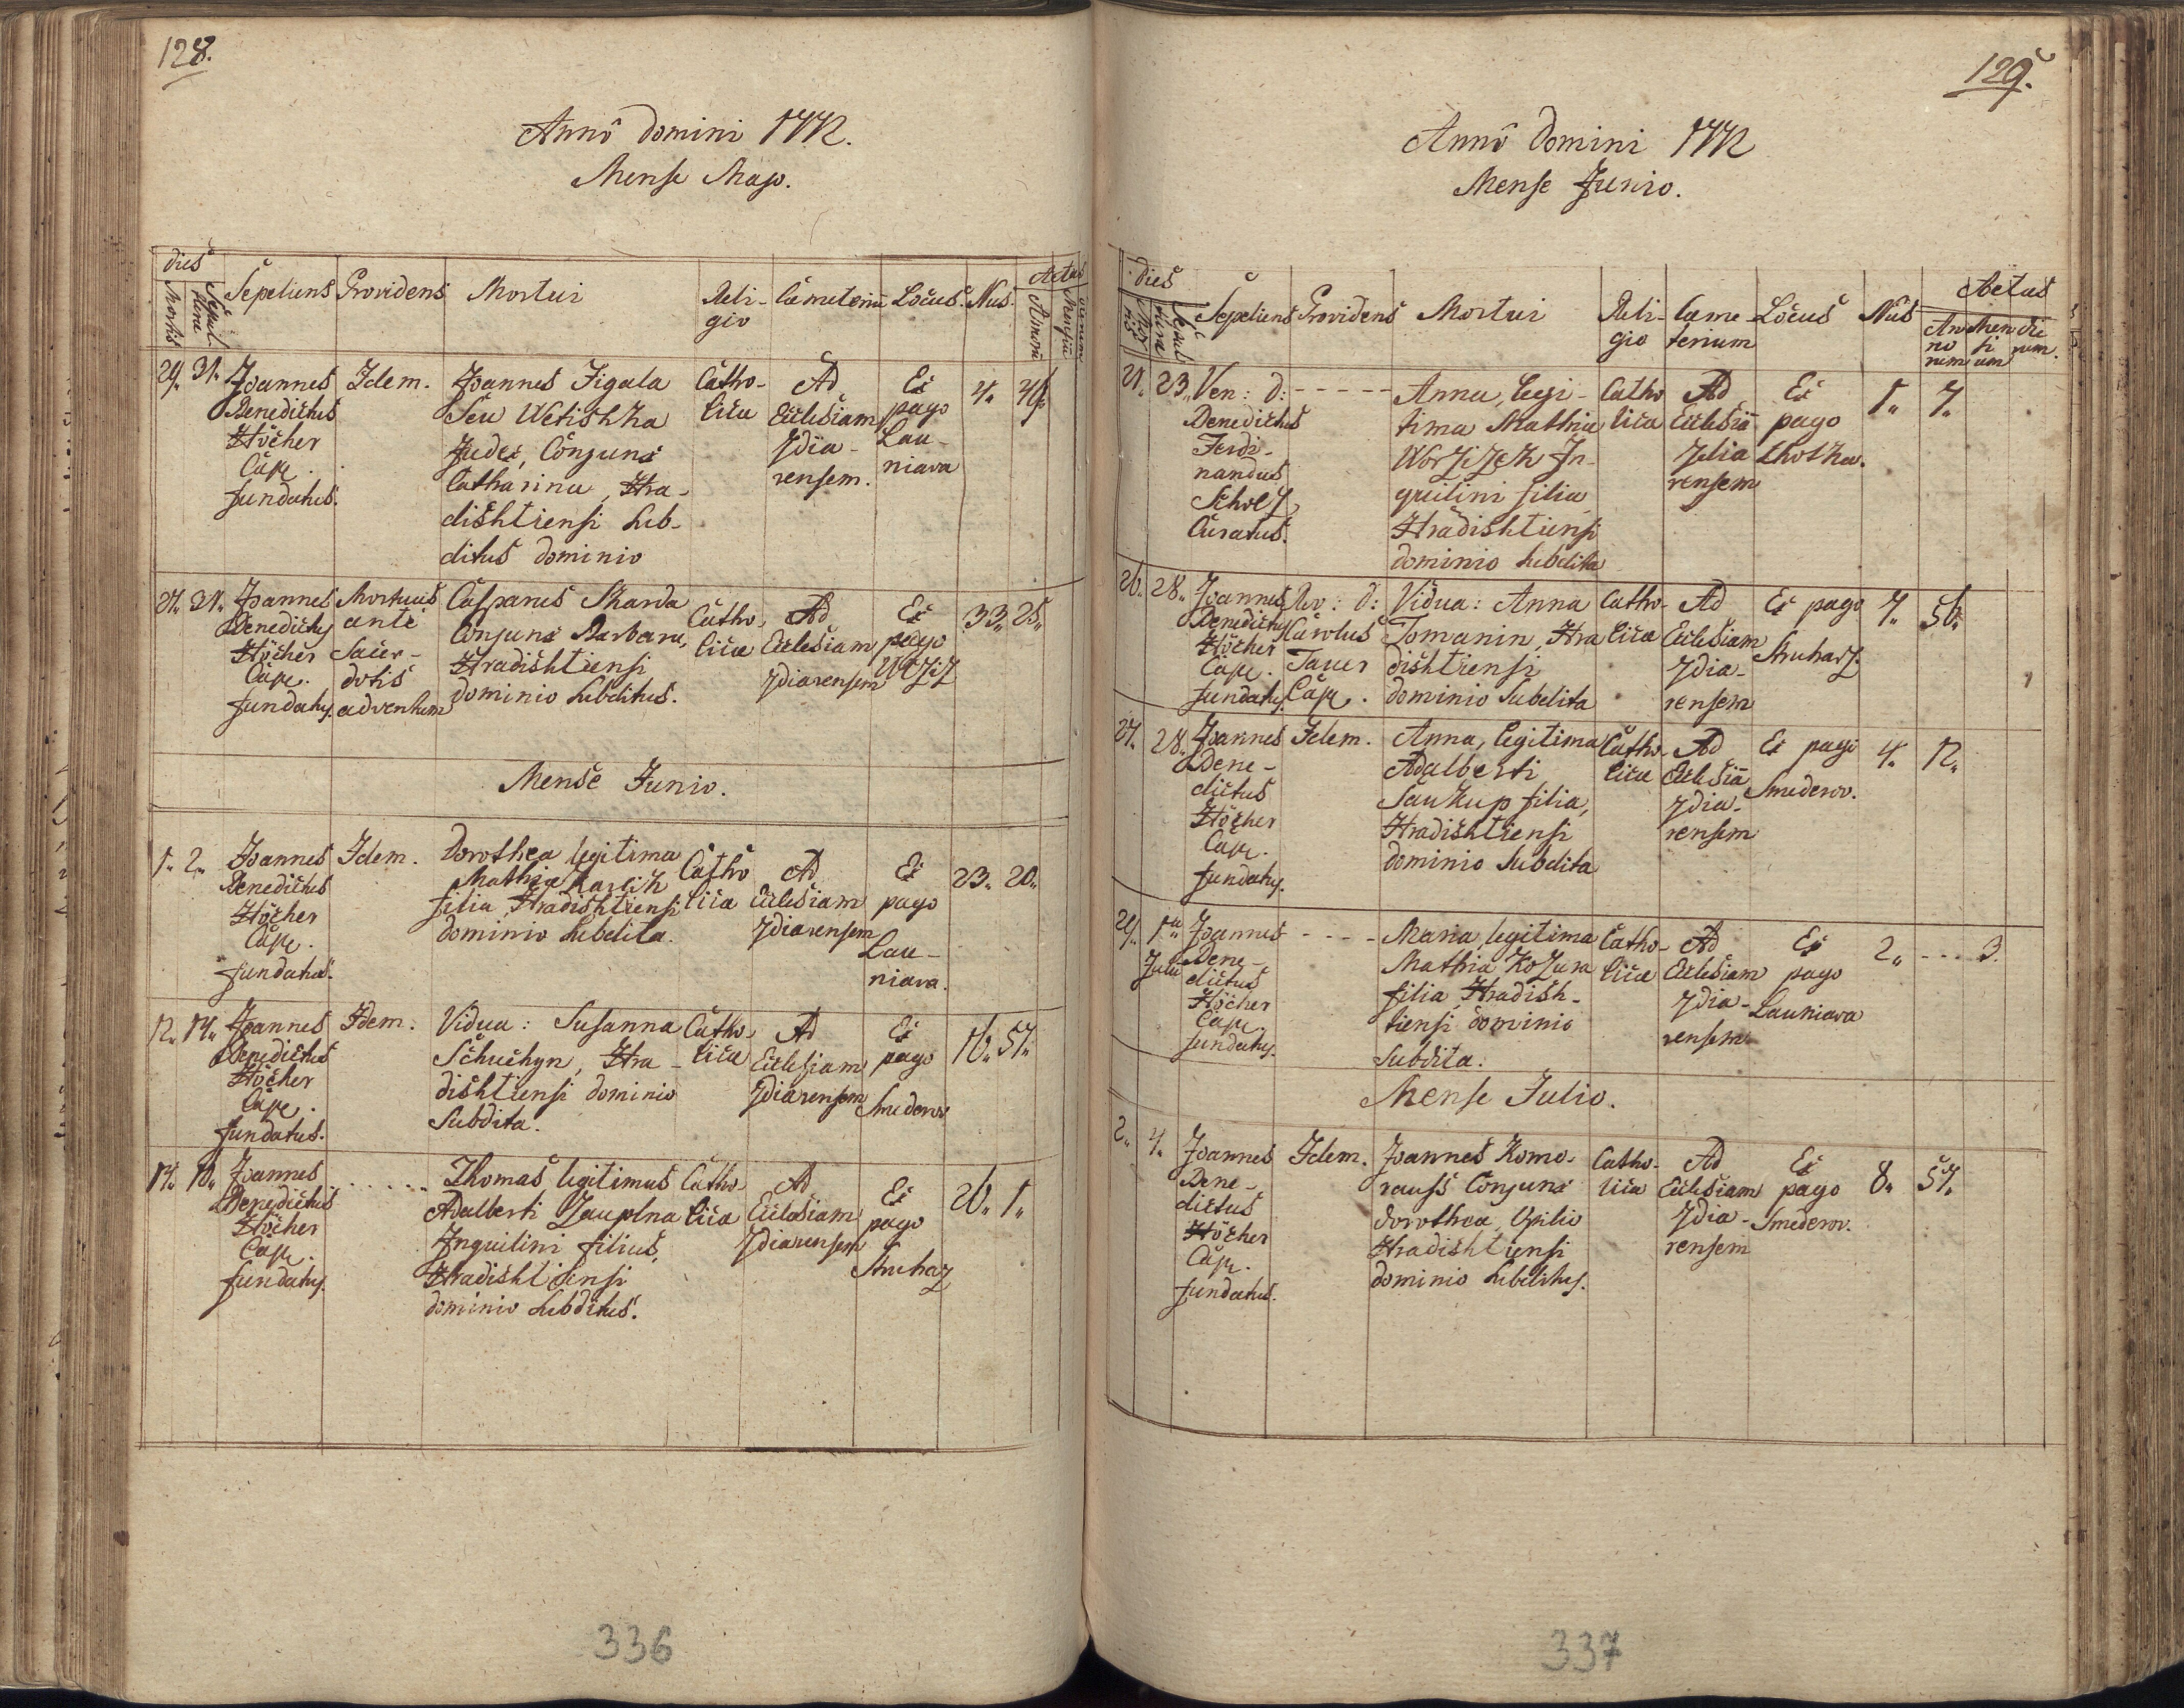 128.
Anno Domini 1772.
Mense Majo.
dies
Mortis
Sepulturae
Sepeliens
Providens
Mortui
Religio
Caemeterium
Locus.
Nus.
Aetas
Annorum
Mensium
29. 31. Joannes
Benedictus
Höcher
Cape.
fundatus.
Idem.
Joannes Jigala
Seu Wetishka
Judex, Conjunx
Catharina, Hra-
dishtiensi Sub-
ditus dominio
Catho-
lica
Ad
Ecclesiam
Zdia-
rensem.
Ex
pago
Lau-
niava
4.
Joannes
Benedictus
Höcher
Cape.
fundatus.
Mortuus
ante
Sacer-
dotis
adventum
Casparus Skarda
Conjunx Barbara,
Hradishtiensi
dominio Subditus.
Catho-
lica
Ad
Ecclesiam
Zdiarensem
Ex
pago
33. 25.
Mense Junio.
1. 2. Joannes
Benedictus
Höcher
Cape.
fundatus.
Idem.
Dorothea legitima
Mathia Karlik
filia Hradishtiensi
dominio Subdita.
Catho
lica
Ad
Ecclesiam
Zdiarensem
Ex
pago
Lau-
niava.
23. 20.
12. 14. Joannes
Benedictus
Höcher
Cape.
fundatus.
Idem.
Vidua: Susanna
Schuchyn, Hra-
dishtiensi dominio
Subdita.
Catho-
lica
Ad
Ecclesiam
Zdiarensem
Ex
pago
Smederov
16. 57.
Joannes
Benedictus
Höcher
Cape.
fundatus.
......
Thomas legitimus
Adalberti Zauplna
Inquilini filius,
Hradishtiensi
dominio Subditus.
Catho-
lica
Ad
Ecclesiam
Zdiarensem
Ex
pago
Struharz
26. 1.
336
129.
Anno Domini 1772
Mense Junio.
dies
Mortis
Sepulturae
Sepeliens
Providens
Mortui
Reli-
gio
Caeme-
terium
Locus
Nus
Aetas
An
no
rum
Men
si
um
die
rum.
21. 23. Ven: D:
Benedictus
Ferdi-
nandus
Scholz,
Curatus.
-----
Anna, legi-
tima Mathiae
Worzizek In-
quilini filia
Hradishtiensi
dominio Subdita
Catho
lica
Ad
Ecclesiam
Zdia
rensem
Ex
pago
Lhotka.
1. 7.
26. 28. Joannes
Benedictus
Höcher
Cape.
fundatus.
Rev: D:
Carolus
Tauer
Cape.
Vidua: Anna
Tomanin, Hra
dishtiensi
dominio Subdita
Catho-
lica
Ad
Ecclesiam
Zdia-
rensem
Ex pago
Struharz.
7. 56.
27. 28. Joannes
Bene-
dictus
Höcher
Cape.
fundatus.
Idem.
Anna, legitima
Adalberti
Saukup filia,
Hradishtiensi
dominio Subdita
Catho-
lica
Ad
Ecclesiam
Zdia-
rensem
Ex pago
Smederov.
4. 12.
29. 1a
Julii
Joannes
Bene-
dictus
Höcher
Cape.
fundatus.
----
Maria legitima
Mathia Kozura
filia Hradish-
tiensi dominio
Subdita.
Catho-
lica
Ad
Ecclesiam
Zdia-
rensem
Ex
pago
Launiava
2. --- 3.
Mense Julio.
2. 4. Joannes
Bene-
dictus
Höcher
Cape.
fundatus.
Idem.
Joannes Komo-
rauss Conjunx
Dorothea, Opilio
Hradishtiensi
dominio Subditus.
Catho-
lica
Ad
Ecclesiam
Zdia-
rensem
Ex
pago
Smederov.
8. 57.
337